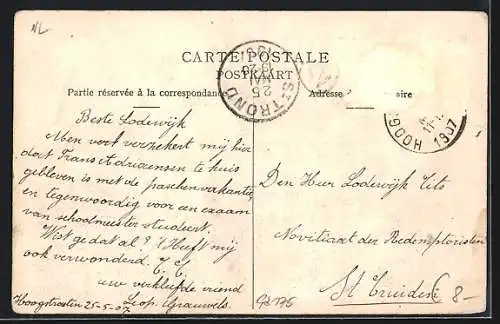 NL
CARTE POSTALE
POSTKAART
Partie réservée à la correspondance
Adresse
aire
St TROND
25
MAI
HOOG
11-
1907
Beste Lodewijk
Men heeft verzekert mij hier
dat Frans Adriaensen te huis
gebleven is met de paschenvakantie,
en tegenwoordig voor een exaam
van schoolmeester studeert.
Wist ge dat al? 't Heeft mij
ook verwonderd.
uw verkleefde vriend
Hoogstraeten 25-5-07 Leop. Grauwels.
Den Heer Lodewijk Tits
Novitiaat der Redemptoristen
St Truiden
8-